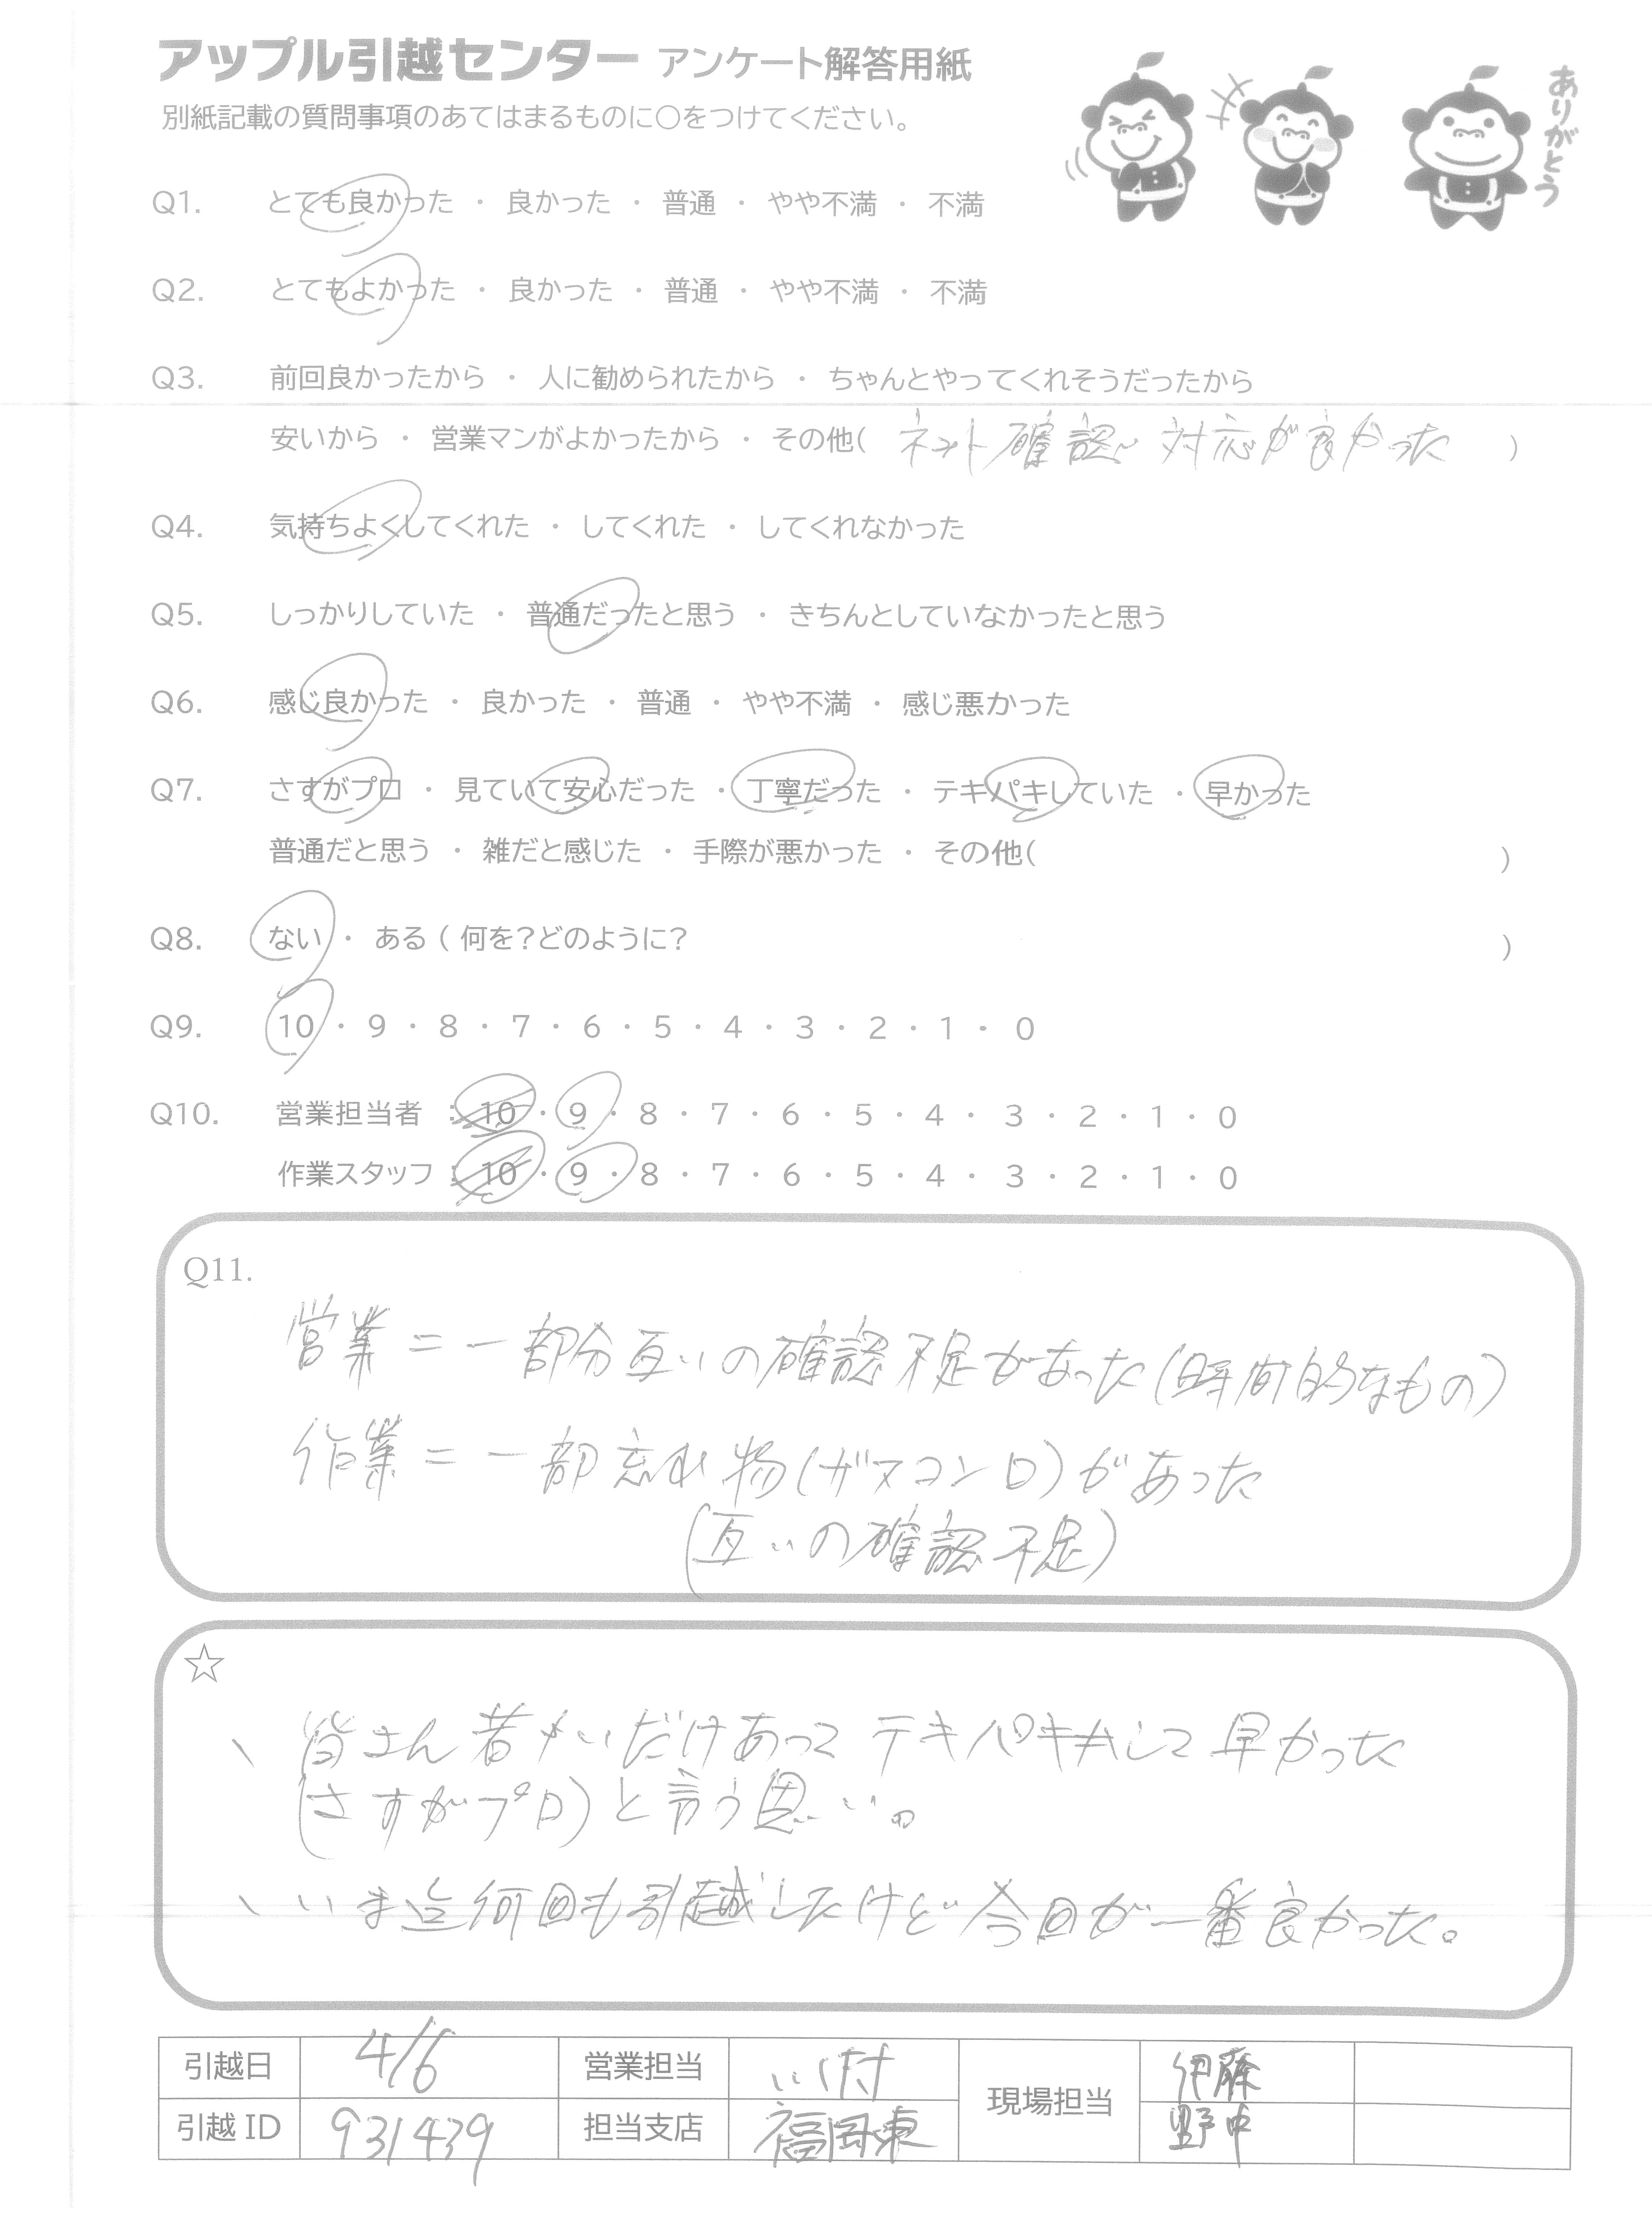 アップル引越センター アンケート解答用紙
別紙記載の質問事項のあてはまるものに〇をつけてください。
ありがとう
Q1. とても良かった ・ 良かった ・ 普通 ・ やや不満 ・ 不満
Q2. とてもよかった ・ 良かった ・ 普通 ・ やや不満 ・ 不満
Q3. 前回良かったから ・ 人に勧められたから ・ ちゃんとやってくれそうだったから
安いから ・ 営業マンがよかったから ・ その他( ネット確認〜対応が良かった )
Q4. 気持ちよくしてくれた ・ してくれた ・ してくれなかった
Q5. しっかりしていた ・ 普通だったと思う ・ きちんとしていなかったと思う
Q6. 感じ良かった ・ 良かった ・ 普通 ・ やや不満 ・ 感じ悪かった
Q7. さすがプロ ・ 見ていて安心だった ・ 丁寧だった ・ テキパキしていた ・ 早かった
普通だと思う ・ 雑だと感じた ・ 手際が悪かった ・ その他( )
Q8. ない ・ ある ( 何を?どのように? )
Q9. 10 ・ 9 ・ 8 ・ 7 ・ 6 ・ 5 ・ 4 ・ 3 ・ 2 ・ 1 ・ 0
Q10. 営業担当者 : 10 ・ 9 ・ 8 ・ 7 ・ 6 ・ 5 ・ 4 ・ 3 ・ 2 ・ 1 ・ 0
作業スタッフ : 10 ・ 9 ・ 8 ・ 7 ・ 6 ・ 5 ・ 4 ・ 3 ・ 2 ・ 1 ・ 0
Q11.
営業=一部分互いの確認不足があった(時間的なもの)
作業=一部忘れ物(ガスコンロ)があった
(互いの確認不足)
☆
、皆さん若いだけあって テキパキして早かった
(さすがプロ)と言う思い。
、いま迄何回も引越ししたけど今回が一番良かった。
引越日 4/6 営業担当 現場担当 伊藤
引越 ID 931439 担当支店 福岡東 野中